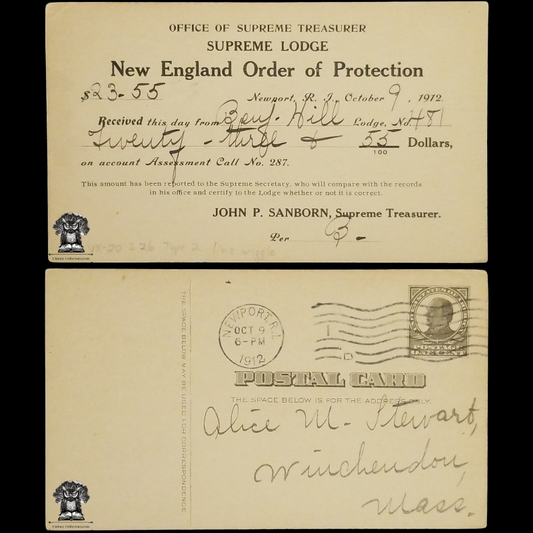 OFFICE OF SUPREME TREASURER
SUPREME LODGE
New England Order of Protection
$23-55 Newport, R. I. October 9, 1912
Received this day from Benj. Hill Lodge, No. 481
Twenty-three & 55/100 Dollars,
on account Assessment Call No. 287.
This amount has been reported to the Supreme Secretary, who will compare it with the records
in his office and certify to the Lodge whether or not it is correct.
JOHN P. SANBORN, Supreme Treasurer.
Per B-
Type 2
THE SPACE BELOW MAY BE USED FOR CORRESPONDENCE
NEWPORT, R.I.
OCT 9
6-PM
1912
POSTAL CARD
THE SPACE BELOW IS FOR THE ADDRESS ONLY.
Alice M. Stewart,
Winchendon,
Mass.